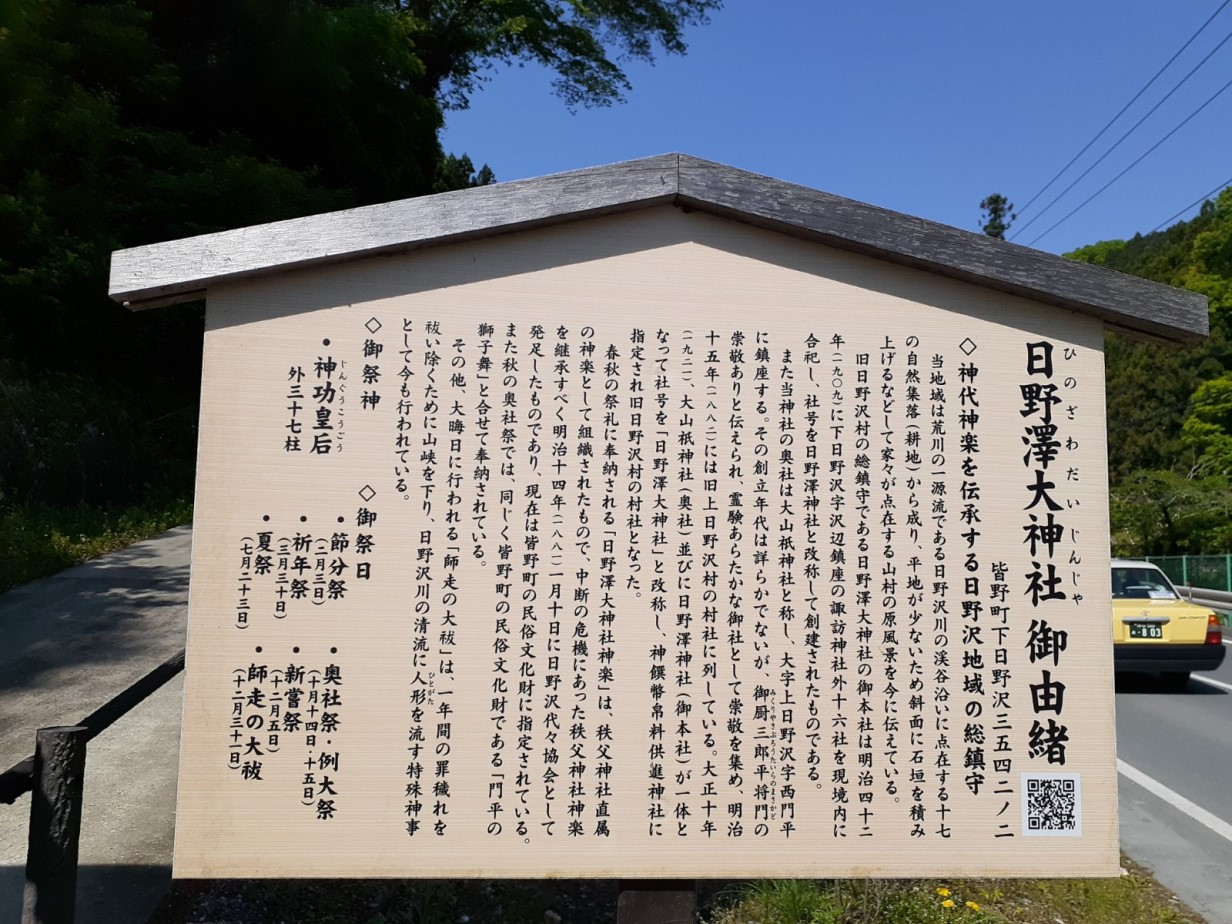 日野澤大神社 御由緒
ひのざわだいじんじゃ
皆野町下日野沢三五四二ノ二
◇神代神楽を伝承する日野沢地域の総鎮守
当地域は荒川の一源流である日野沢川の渓谷沿いに点在する十七
の自然集落(耕地)から成り、平地が少ないため斜面に石垣を積み
上げるなどして家々が点在する山村の原風景を今に伝えている。
旧日野沢村の総鎮守である日野澤大神社の御本社は明治四十二
年(一九〇九)に下日野沢字沢辺鎮座の諏訪神社外十六社を現境内に
合祀し、社号を日野澤神社と改称して創建されたものである。
また当神社の奥社は大山祇神社と称し、大字上日野沢字西門平
に鎮座する。その創立年代は詳らかでないが、御厨三郎平将門の
みくりやさぶろうたいらのまさかど
崇敬ありと伝えられ、霊験あらたかな御社として崇敬を集め、明治
十五年(一八八二)には旧上日野沢村の村社に列している。大正十年
(一九二一)、大山祇神社(奥社)並びに日野澤神社(御本社)が一体と
なって社号を「日野澤大神社」と改称し、神饌幣帛料供進神社に
指定され旧日野沢村の村社となった。
春秋の祭礼に奉納される「日野澤大神社神楽」は、秩父神社直属
の神楽として組織されたもので、中断の危機にあった秩父神社神楽
を継承すべく明治十四年(一八八一)一月十日に日野沢代々協会として
発足したものであり、現在は皆野町の民俗文化財に指定されている。
また秋の奥社祭では、同じく皆野町の民俗文化財である「門平の
獅子舞」と合せて奉納されている。
その他、大晦日に行われる「師走の大祓」は、一年間の罪穢れを
祓い除くために山峡を下り、日野沢川の清流に人形を流す特殊神事
ひとがた
として今も行われている。
◇御祭神
・神功皇后
じんぐうこうごう
外三十七柱
◇御祭日
・節分祭
(二月三日)
・祈年祭
(三月三十日)
・夏祭
(七月二十三日)
・奥社祭・例大祭
(十月十四日・十五日)
・新嘗祭
(十二月五日)
・師走の大祓
(十二月三十一日)
・803